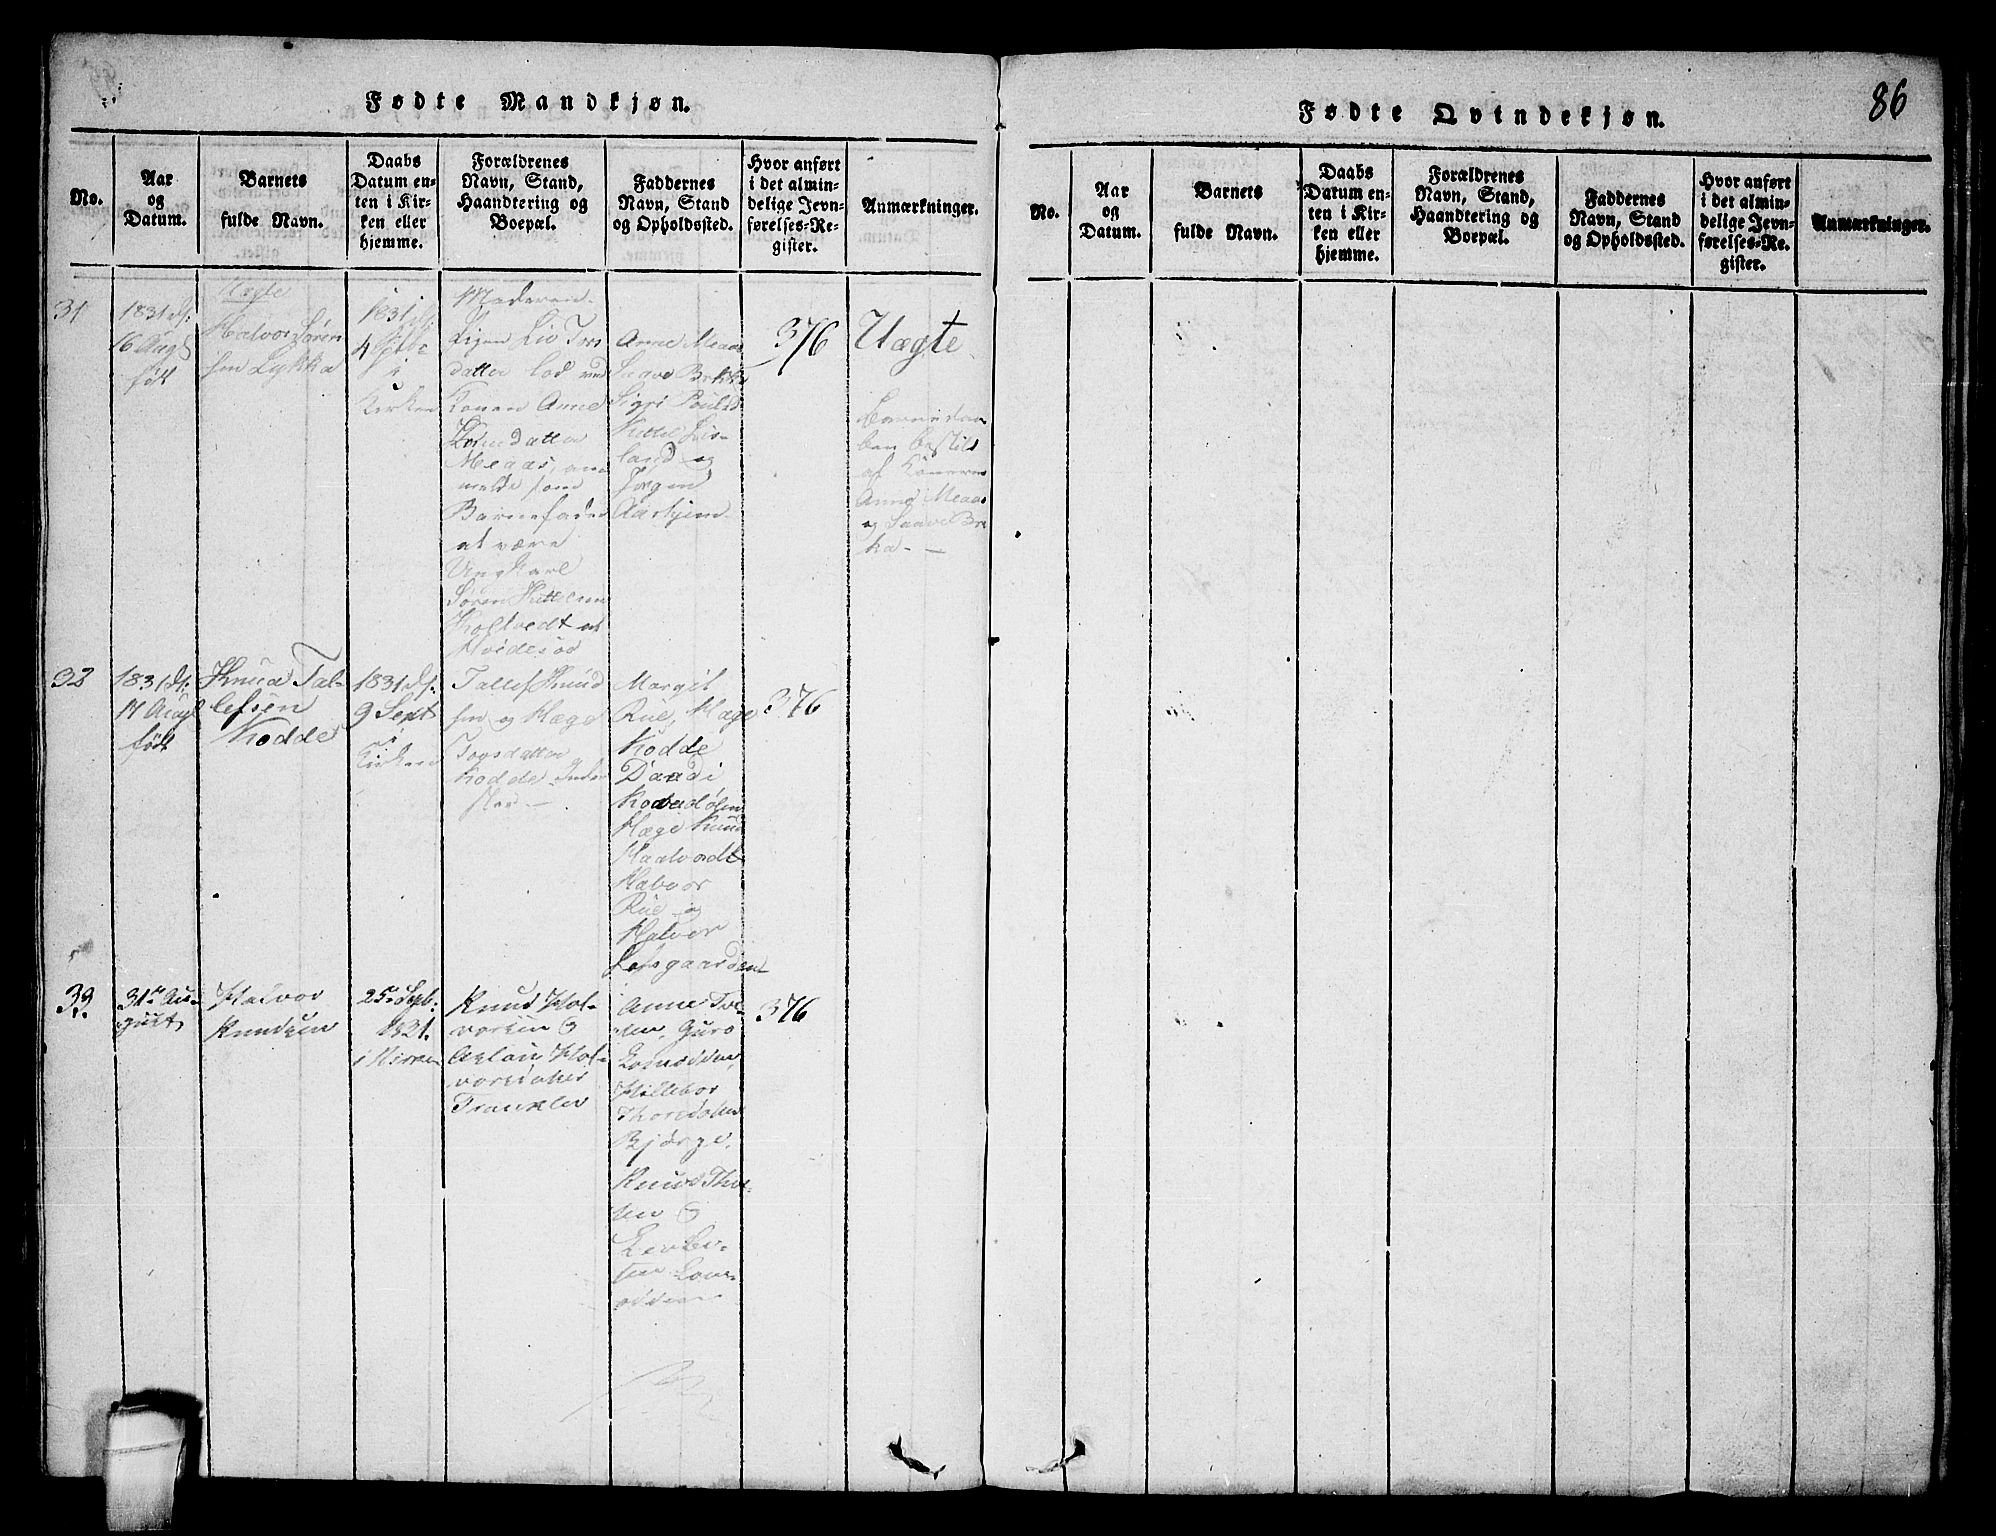 Fødte Mandkjøn.
No.
Aar
og
Datum.
Barnets
fulde Navn.
Daabs
Datum en-
ten i Kir-
ken eller
hjemme.
Forældrenes
Navn, Stand,
Haandtering og
Boepæl.
Faddernes
Navn, Stand
og Opholdssted.
Hvor anført
i det almin-
delige Jevn-
førelses-Re-
gister.
Anmærkninger.
31
1831
16 Aug
født
Uægte
Halvor Søren
sen Lykka
1831
4 Sptbr
i
Kirken
Moderen
Pigen Liv Tors
datter lod ved
Konen Anne
datter
Meaas, an
melde som
Barnefader
at være
Ungkarl
Søren Kittelsen
Holtvedt at
Hvidesøe
Anne Meaas
Saave Brekka
Sigri Poulsd
Kittel
land og
Jørgen
Aashjem
376
Uægte
Barnedaa
ben bestilt
af Konerne
Anne Meaas
og Saave Bre
ka
32
1831
17 Aug
født
Knud Tal-
lefsen
Kodde
1831
9 Sept
i
Kirken
Tallef Knud
sen og Hæge
datter
Kodde Inder
ster
Margit
Rue, Hæge
Kodde
Daadi
Hæge Knud
Haatvedt
Halvor
Rue og
Halvor
Lofsgaarden
376
33.
31te Au-
gust
Halvor
Knudsen
25de Sepb.
1831.
i Kirken
Knud Hal-
vorsen &
Aslau Hal-
vorsdatter
Tranklev
Anne Tve-
ten, Guro
Lonodden,
Hillebor
Thorsdatter
Bjørge,
Knud Thve-
ten &
ten Lon-
odden
376
Fødte Qvindekjøn.
86
No.
Aar
og
Datum.
Barnets
fulde Navn.
Daabs
Datum en-
ten i Kir-
ken eller
hjemme.
Forældrenes
Navn, Stand,
Haandtering og
Boepæl.
Faddernes
Navn, Stand
og Opholdssted.
Hvor anført
i det almin-
delige Jevn-
førelses-Re-
gister.
Anmærkninger.